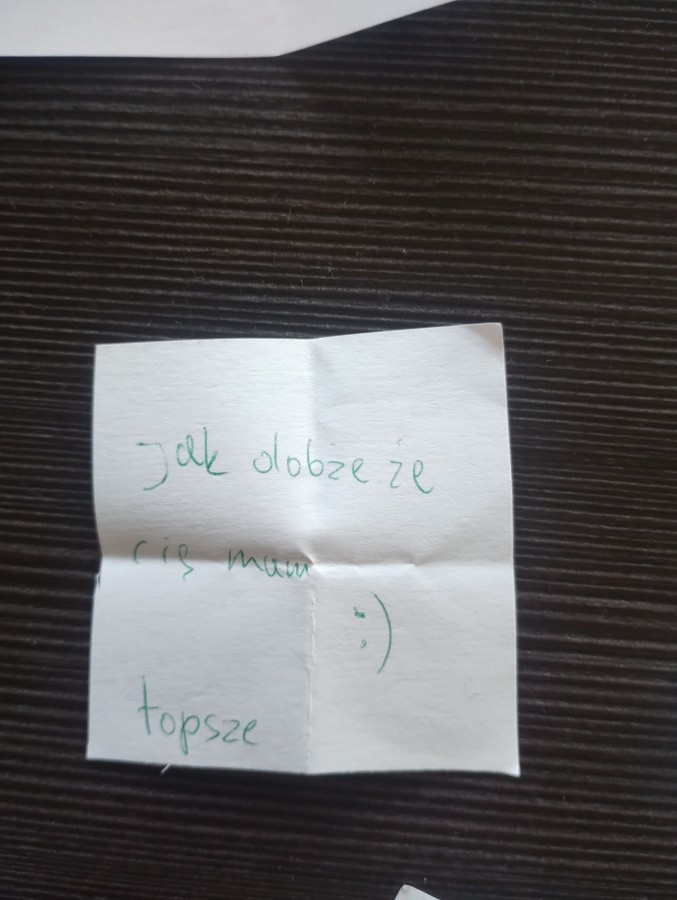 Jak dobże że
cię mam
:)
topsze